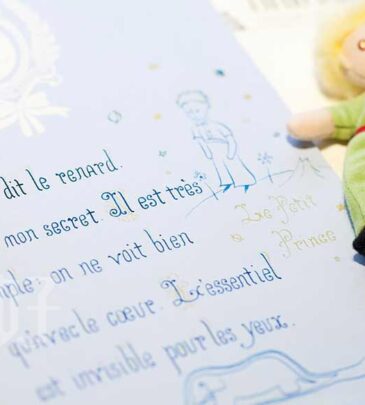 dit le renard.
mon secret. Il est très
mple: on ne voit bien
qu'avec le cœur. L'essentiel
est invisible pour les yeux.
Le Petit
Prince